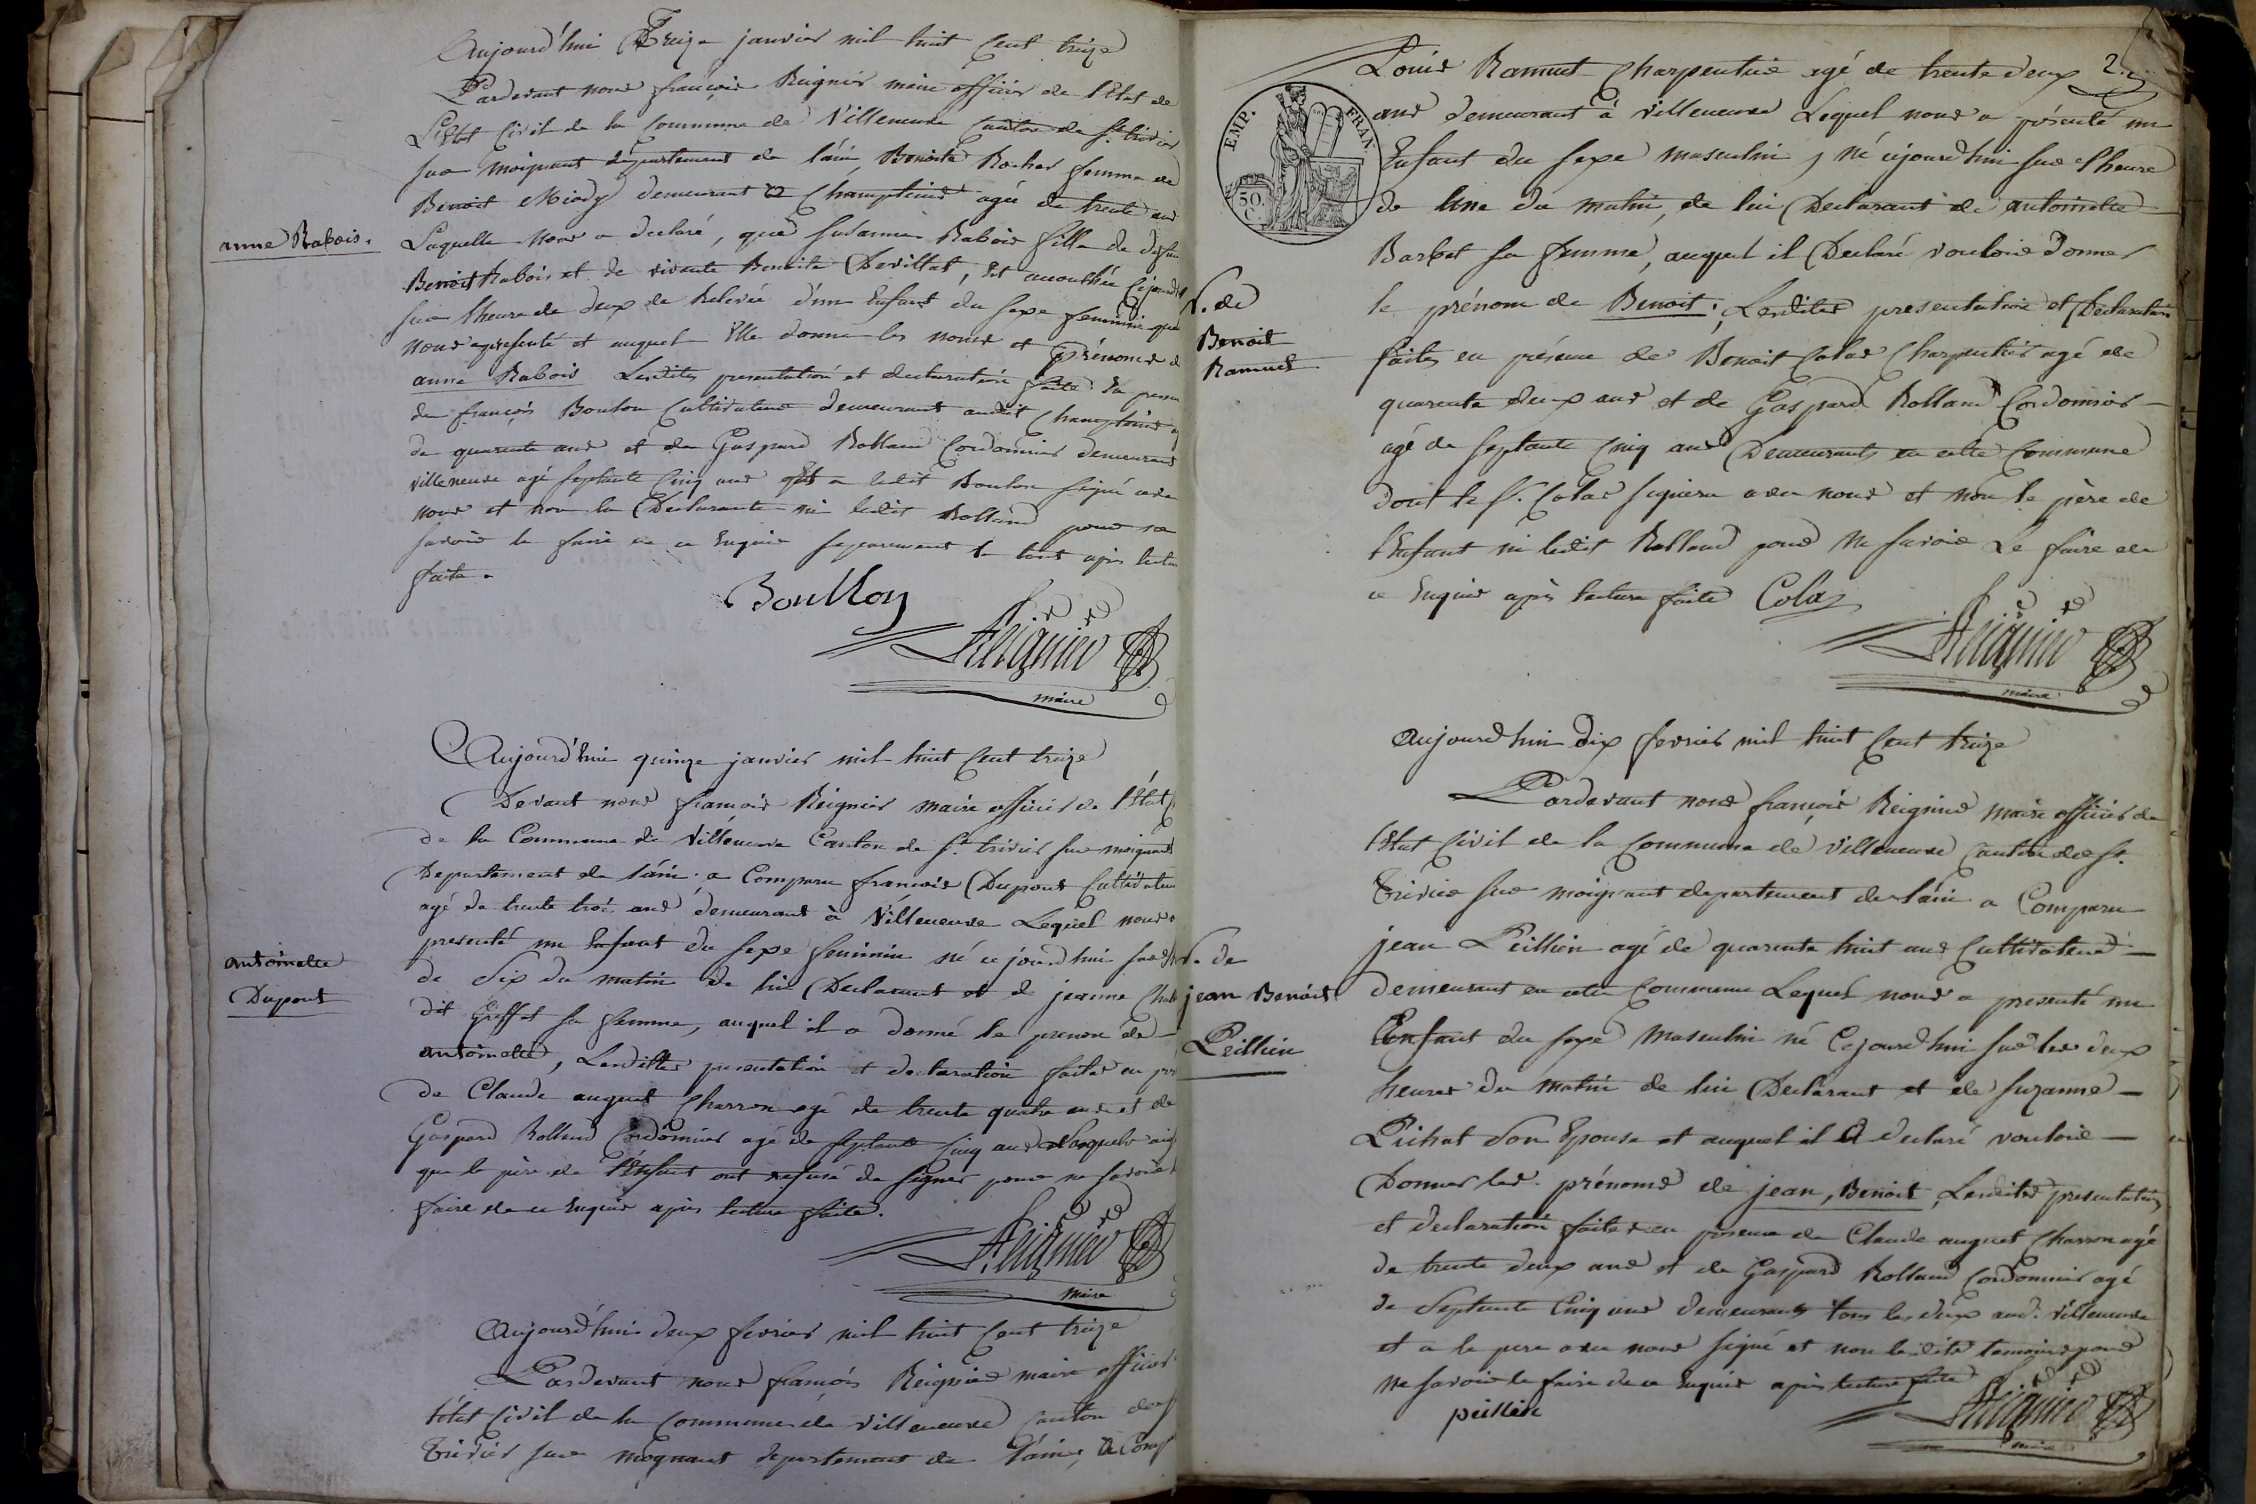 Aujourd'hui Treize janvier mil huit Cent treize
Pardevant nous françois Reignier maire officier de l'Etat de
L'Etat Civil de la Commune de Villeneuve Canton de St. trivier
sur Moignant département de l'ain, Benoite Rocher femme de
Benoit Miody demeurant a Champteins agée de trente ans
Laquelle Nous a declaré, que susanne Rabois fille de defun
Benoit Rabois et de vivante Benoite Devillat, Est accouchée Cejourd'h
sur l'heure de deux de Relevée d'un Enfant du sexe feminin que
nous a presenté et auquel Elle donne les noms et prénoms d
anne Rabois Lesdites presentation et declaration faite En presen
de françois Boulon Cultivateur demeurant audit Champteins a
de quarente ans et de Gaspard Rolland Cordonnier demeurant
villeneuve agé septente Cinq ans Et a ledit Boulon signé avec
nous et non la Declarante ni ledit Rolland pour ne
savoir le faire de ce Enquis separement le tout après lectu
faite.
anne Rabois.
Boullon
Reignier
maire
Aujourd'hui quinze janvier mil huit Cent treize
Devant nous francois Reignier maire officier de l'Etat
de la Commune de Villeneuve Canton de St. trivier sur moignant
Departement de l'ain. a Comparu francois Dupont Cultivateur
agé de trente trois ans demeurant à Villeneuve Lequel nous a
presenté un Enfant du sexe feminin né ce jourd'hui sur
de Six du matin de lui Declarant et de jeanne
dit Greffet sa femme, auquel il a donné le prenom de
antoinette, Lesdittes presentation et declaration faites en pré
de Claude auguet Charron agé de trente quatre ans et de
Gaspard Rolland Cordonnier agé de septante Cinq ans Lesquels ain
que le père de l'Enfant ont refusé de signer pour ne savoir l
faire de ce Enquis après lecture faite.
antoinette
Dupont
Reignier
maire
Aujourd'hui deux fevrier mil huit Cent treize
Pardevant nous françois Reignier maire officier
l'état Civil de la Commune de Villeneuve Canton de S
Trivier sur moignant departement de l'ain, a Comp
2.
Louis Ramuet Charpentier agé de trente deux
ans demeurant à villeneuve Lequel nous a présenté un
Enfant du sexe masculin, Né cejourd'hui sur l'heure
de Une du matin, de lui Declarant et de antoinette
Barbet sa femme, auquel il Declaré vouloir Donner
le prénom de Benoit; Lesdites presentation et Declaration
faites en présence de Benoit Colas Charpentier agé de
quarente deux ans et de Gaspard Rolland Cordonnier
agé de septante Cinq ans Demeurants en cette Commune
dont le Sr. Colas signera avec nous et non le père de
l'Enfant ni ledit Rolland pour Ne savoir Le faire de
ce Enquis après lecture faite Colas
EMP. FRAN.
50.
C.
N. de
Benoit
Ramuet
Reignier
maire
Aujourd'hui Dix fevrier mil huit Cent treize
Pardevant nous françois Reignier maire officier de
l'Etat Civil de la Commune de Villeneuve Canton de St.
Trivier sur moignant departement de l'ain a Comparu
jean Peillien agé de quarente huit ans Cultivateur
demeurant en cette Commune Lequel nous a presenté un
Enfant du sexe Masculin né Cejourd'hui sur les deux
heures du matin de lui Declarant et de suzanne
Pichat Son Epouse et auquel il a declaré vouloir
Donner les prénoms de jean, Benoit, Lesdites presentation
et declaration faites en présence de Claude auguet Charron agé
de trente deux ans et de Gaspard Rolland Cordonnier agé
de Septente Cinq ans demeurants tous les deux aud. villeneuve
et a le pere avec nous signé et non lesdits temoins pour
ne savoir le faire de ce Enquis après lecture faite
N. de
jean Benoit
Peillien
peillien
Reignier
maire